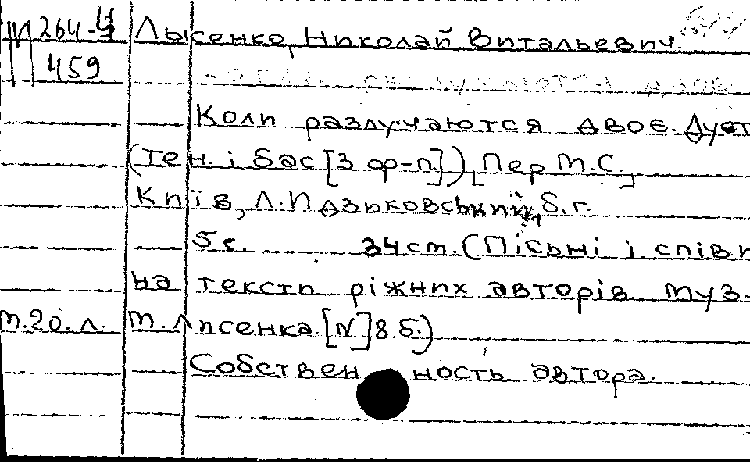 М 264-4 Лысенко, Николай Витальевич.
459
Коли разлучаются двоє. Дует
(тен. і бас [з ф-п.]), [Пер М.С.]
Київ, Л. Идзьковський, б.г.
5 с. 34 ст. (Пісьні і співи
на тексти ріжних авторів муз.
т.20.л. М. Лисенка. [N] 8 б.)
Собственность автора.